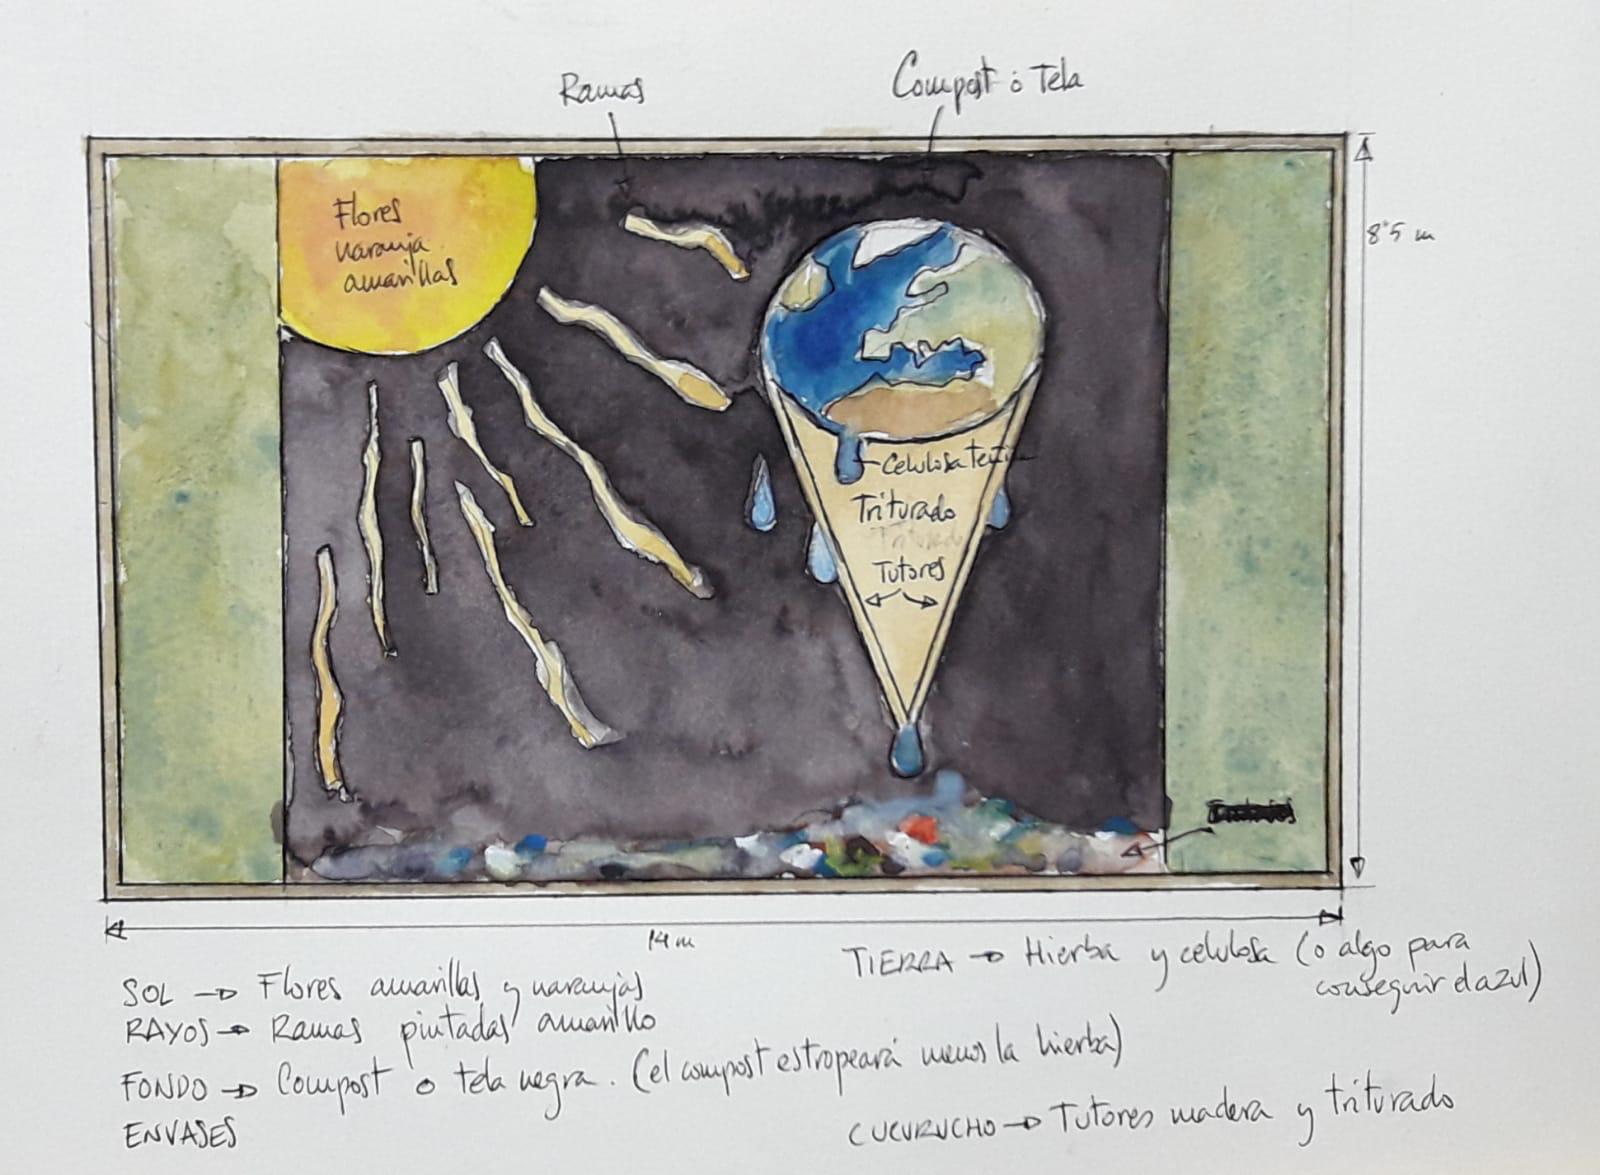 Ramas
Compost ó Tela
Flores
naranja
amarillas
8'5 m
Celulosa
Triturado
Triturado
Tutores
14 m
SOL → Flores amarillas y naranjas
RAYOS → Ramas pintadas amarillo
FONDO → Compost o tela negra. (el compost estropeará menos la hierba)
ENVASES
TIERRA → Hierba y celulosa (o algo para
conseguir el azul)
CUCURUCHO → Tutores madera y triturado